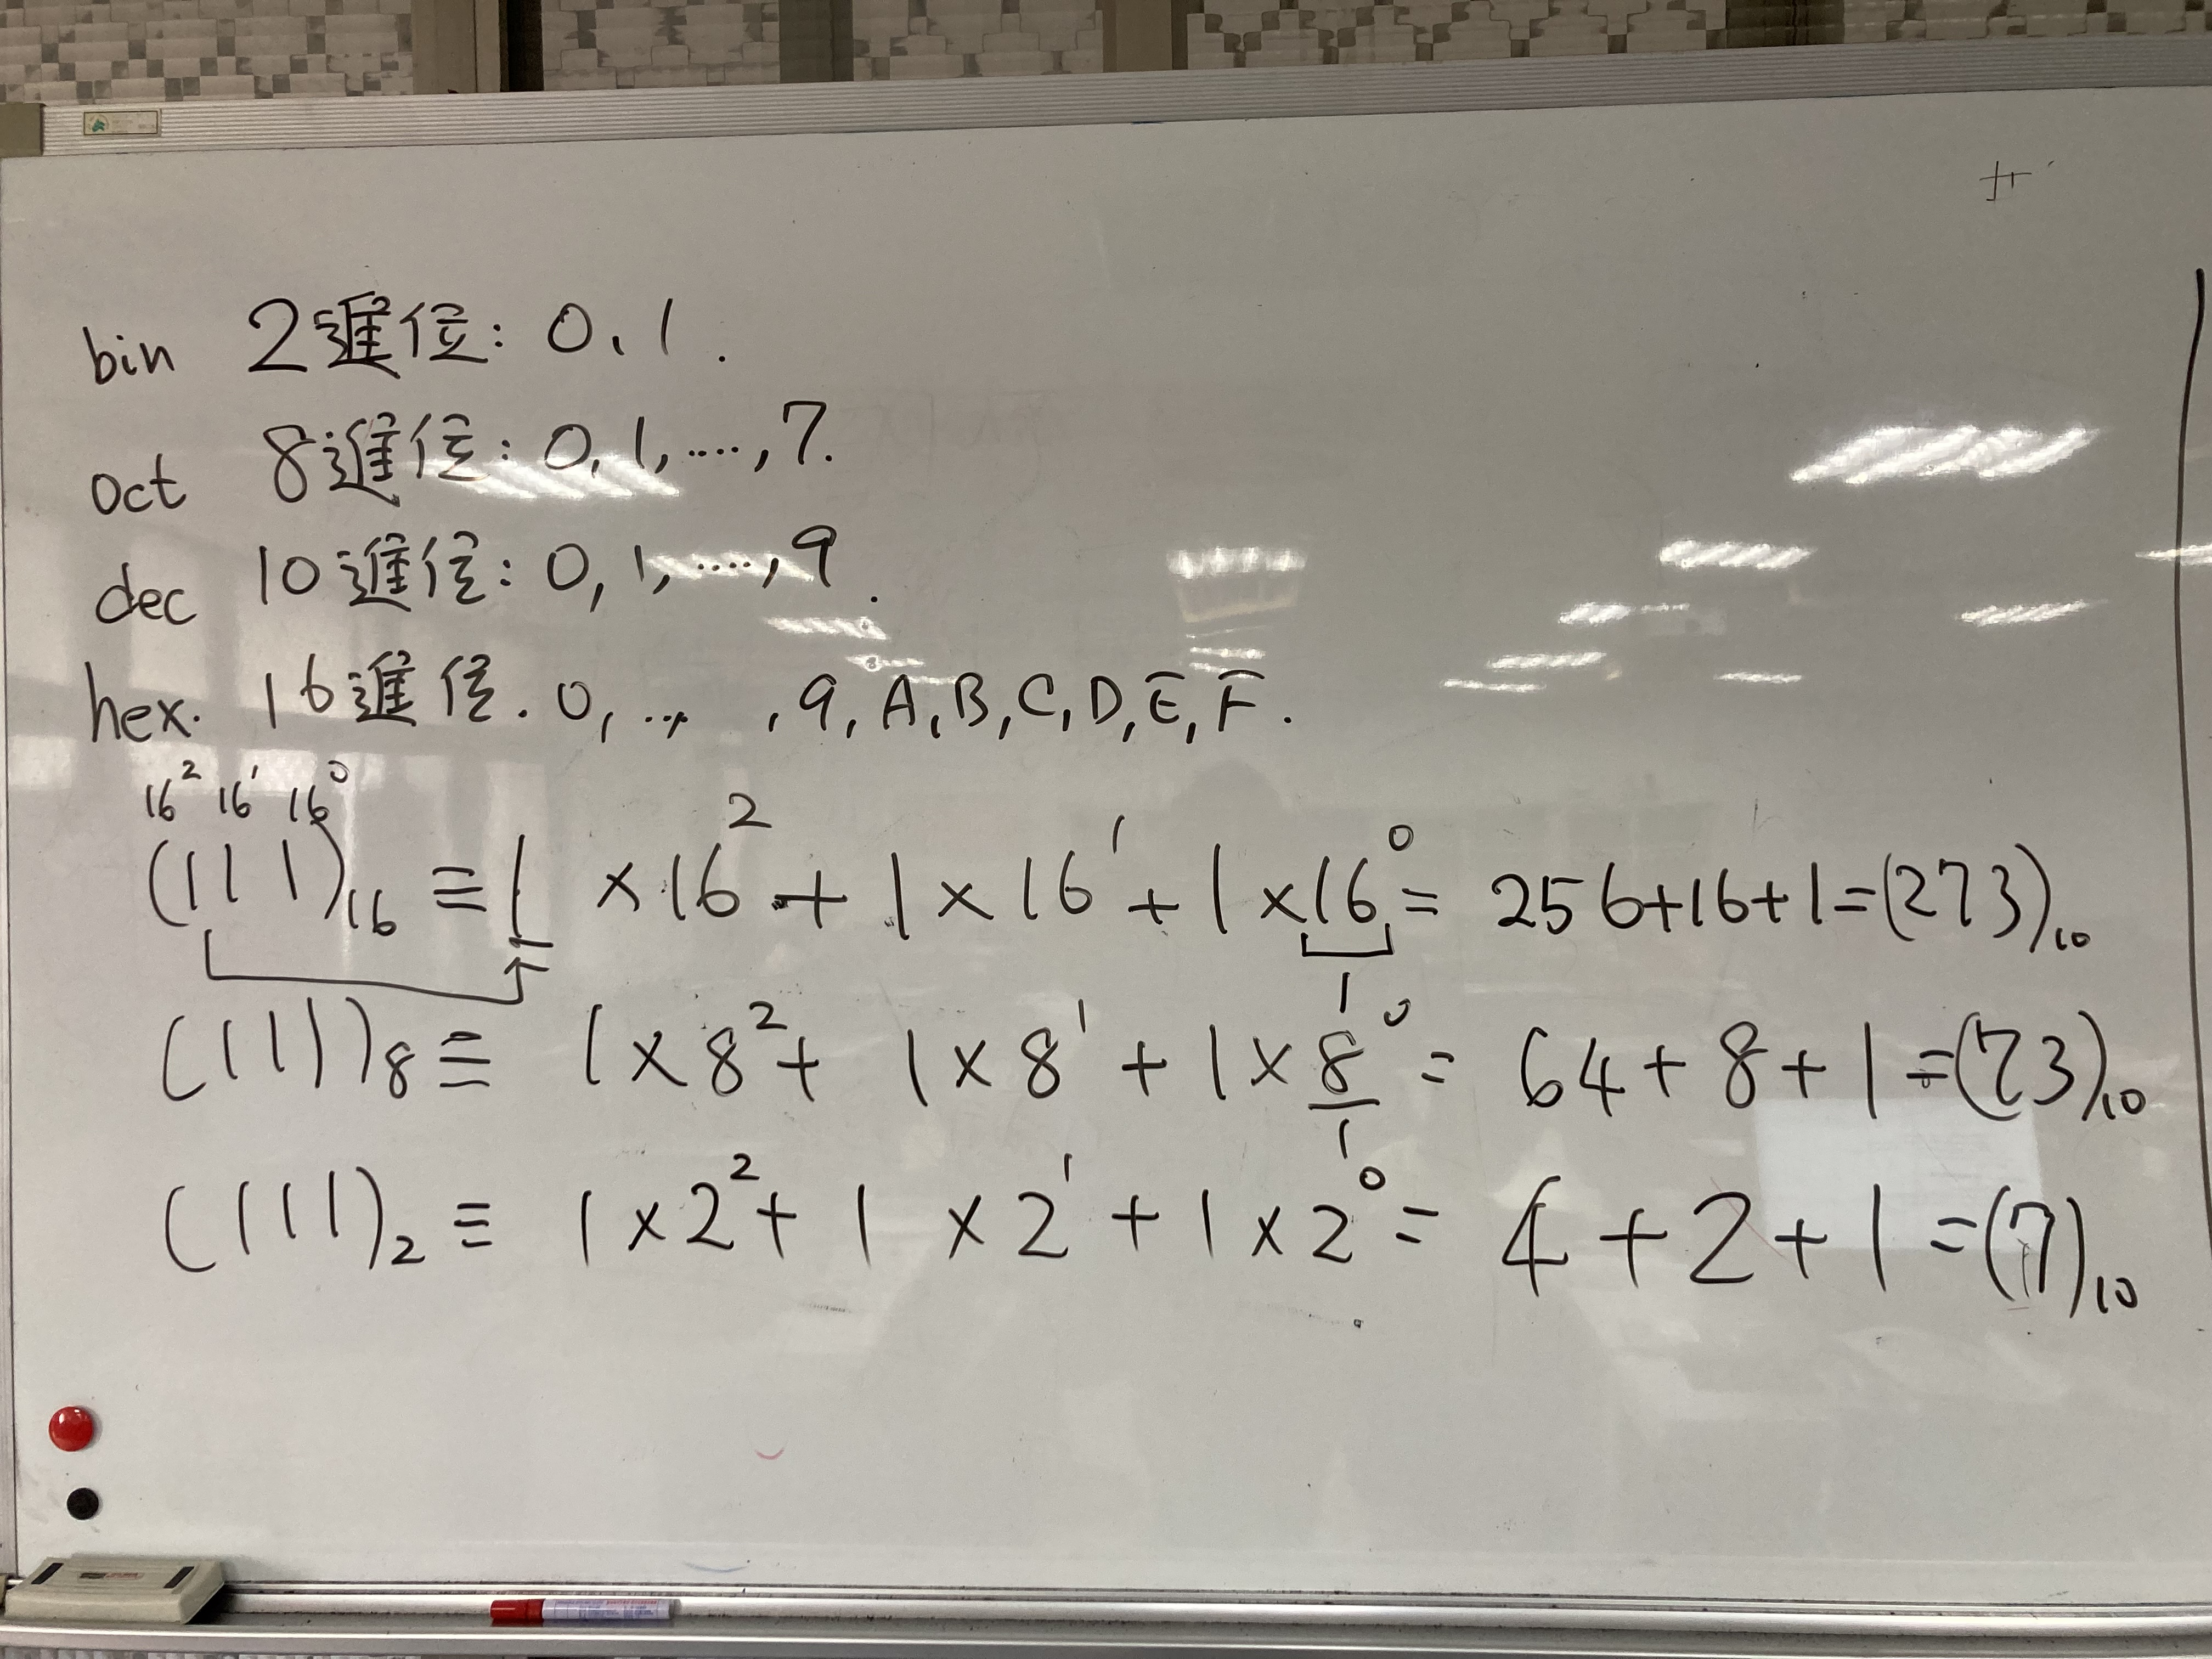 bin 2進位: 0, 1.
oct 8進位: 0, 1, ...., 7.
dec 10進位: 0, 1, ...., 9.
hex. 16進位. 0, ..., , 9, A, B, C, D, E, F.
16² 16¹ 16⁰
(111)₁₆ ≡ 1 × 16² + 1 × 16¹ + 1 × 16⁰ = 256+16+1=(273)₁₀
1
(111)₈ ≡ 1 × 8² + 1 × 8¹ + 1 × 8⁰ = 64 + 8 + 1 =(73)₁₀
1
(111)₂ ≡ 1 × 2² + 1 × 2¹ + 1 × 2⁰ = 4 + 2 + 1 =(7)₁₀